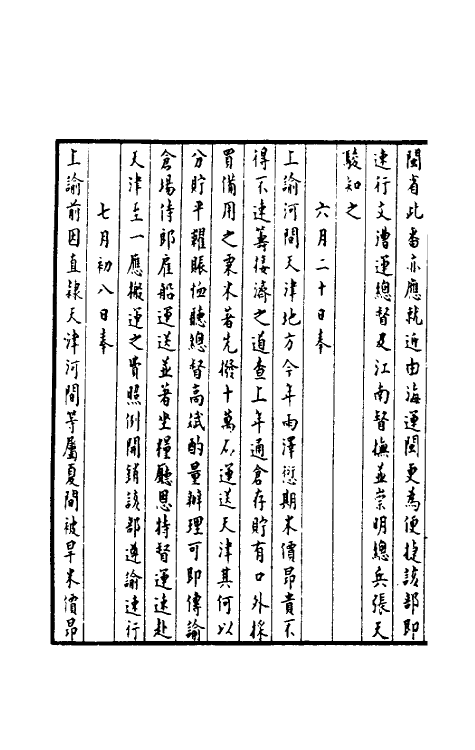 閩省此番亦應就近由海運閩更為便捷該部即
速行文漕運總督及江南督撫並崇明總兵張天
駿知之
六月二十日奉
上諭河間天津地方今年雨澤愆期米價昂貴不
得不速籌接濟之道查上年通倉存貯有口外採
買備用之粟米著先撥十萬石運送天津其何以
分貯平糶賑恤聽總督高斌酌量辦理可即傳諭
倉場侍郎雇船運送並著坐糧廳恩特督運速赴
天津至一應搬運之費照例開銷該部遵諭速行
七月初八日奉
上諭前因直隸天津河間等屬夏間被旱米價昂